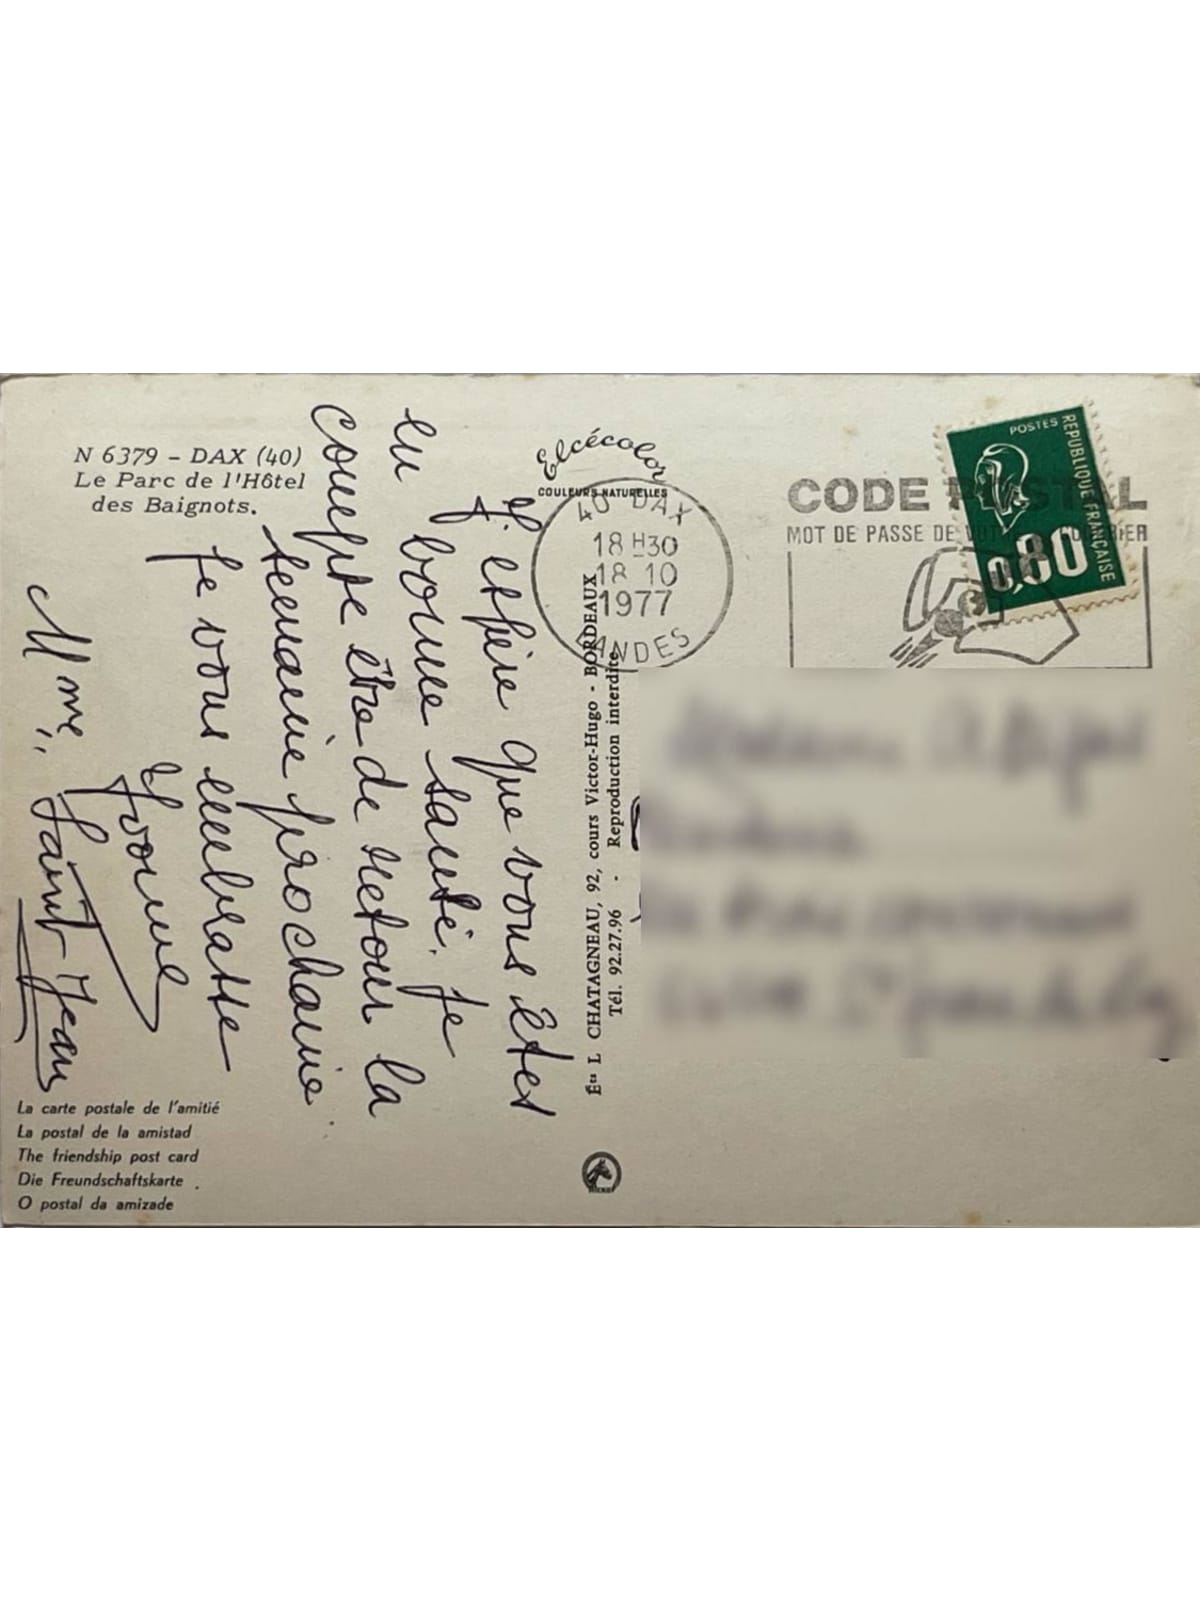 N 6379 - DAX (40)
Le Parc de l'Hôtel
des Baignots.
J'espère que vous êtes
en bonne santé. Je
compte être de retour la
semaine prochaine
Je vous embrasse
Yvonne
Mme Saint-Jean
La carte postale de l'amitié
La postal de la amistad
The friendship post card
Die Freundschaftskarte
O postal da amizade
Elcécolor
COULEURS NATURELLES
40 DAX
18 H30
18 10
1977
LANDES
Éts L CHATAGNEAU, 92, cours Victor-Hugo - BORDEAUX
Tél. 92.27.96 - Reproduction interdite
CODE POSTAL
MOT DE PASSE DE VOTRE COURRIER
POSTES
REPUBLIQUE FRANÇAISE
0,80